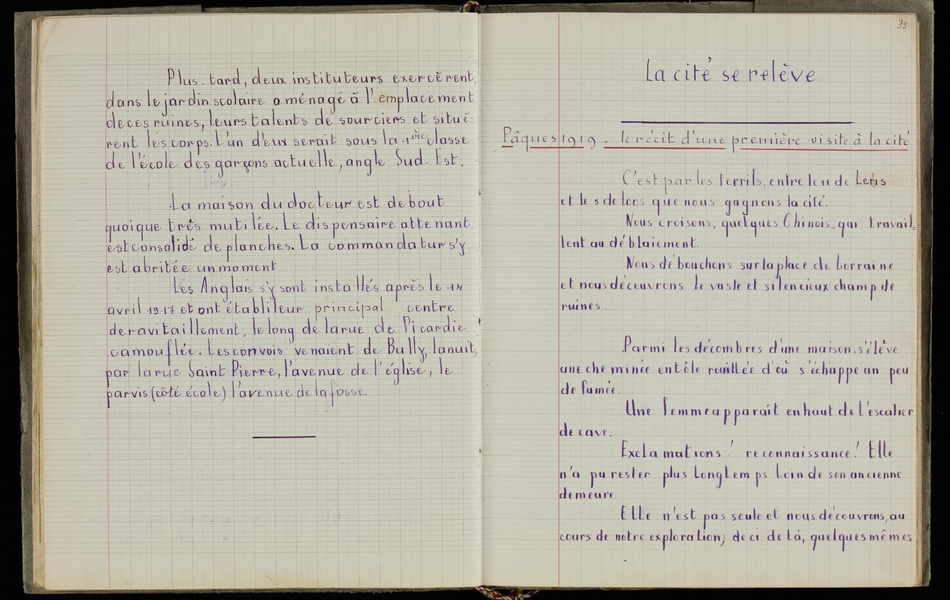 Plus tard, deux instituteurs exercèrent,
dans le jardin scolaire aménagé à l'emplacement
de ces ruines, leurs talents de sourciers et situè-
rent les corps. L'un d'eux serait sous la 1ère classe
de l'école des garçons actuelle, angle Sud-Est.
La maison du docteur est debout
quoique très mutilée. Le dispensaire attenant
est consolidé de planches. La commandatur s'y
est abritée un moment
Les Anglais s'y sont installés après le 14
avril 1917 et ont établi leur principal centre
de ravitaillement, le long de la rue de Picardie
camouflée. Les convois venaient de Bully, la nuit,
par la rue Saint Pierre, l'avenue de l'église, le
parvis (côté école) l'avenue de la fosse.
35
La cité se relève
Pâques 1919 - le récit d'une première visite à la cité
C'est par les terrils, entre le 11 de Lens
et le 5 de Loos que nous gagnons la cité.
Nous croisons, quelques Chinois, qui travail-
lent au déblaiement.
Nous débouchons sur la place de Lorraine
et nous découvrons le vaste et silencieux champ de
ruines.
Parmi les décombres d'une maison, s'élève
une cheminée en tôle rouillée d'où s'échappe un peu
de fumée.
Une femme apparaît en haut de l'escalier
de cave.
Exclamations! reconnaissance! Elle
n'a pu rester plus longtemps loin de son ancienne
demeure.
Elle n'est pas seule et nous découvrons, au
cours de notre exploration, de ci de là, quelques mêmes